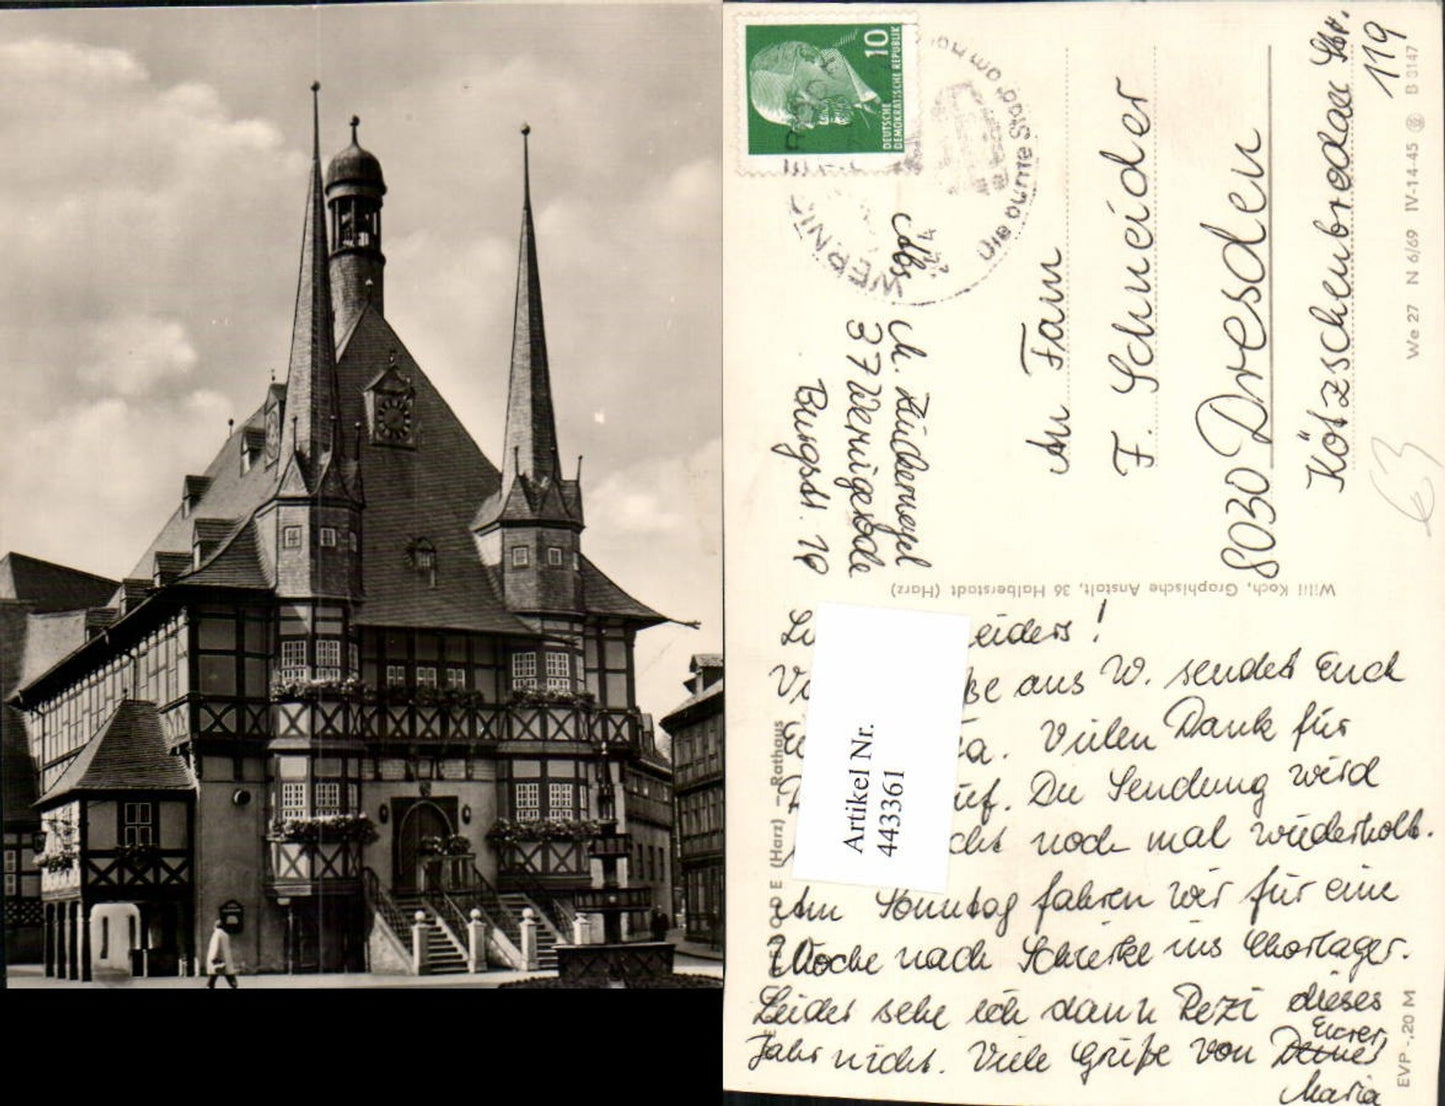 10
DEUTSCHE
DEMOKRATISCHE REPUBLIK
WERNI
Die bunte Stadt am
Abs
M.
37 Wernigerode
Burgstr. 19
An Fam
F. Schneider
8030 Dresden
Kötzschenbrodaer Str.
119
We 27 N 6/69 IV-14-45 B 3147
63
Willi Koch, Graphische Anstalt, 36 Halberstadt (Harz)
ODE (Harz) — Rathaus
EVP -,20 M
Artikel Nr.
443361
eiders!
ße aus W. sendet Euch
a. Vielen Dank für
uf. Die Sendung wird
cht noch mal wiederholt.
Am Sonntag fahren wir für eine
Woche nach Schierke ins Chorlager.
Leider sehe ich dann Rezi dieses
Jahr nicht. Viele Grüße von Eurer
Maria